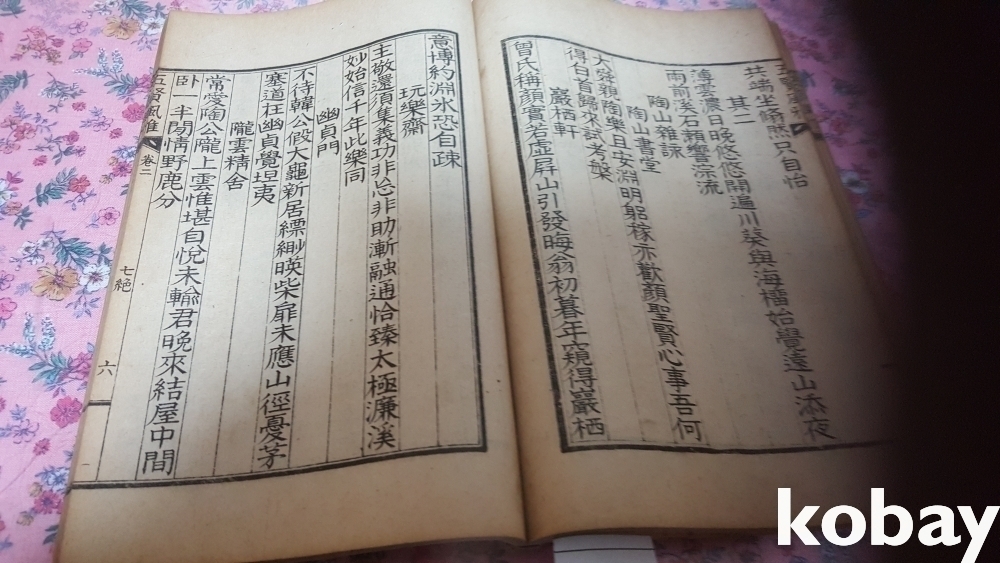 共端坐翛然只自怡
其二
薄雲濃日晚悠悠開遍川葵與海榴始覺遠山添夜
雨前溪石瀨響淙流
陶山雜詠
陶山書堂
大舜親陶樂且安淵明躬稼亦歡顏聖賢心事吾何
得白首歸來試考槃
巖栖軒
曾氏稱顏實若虛屏山引發晦翁初暮年窺得巖栖
意博約淵氷恐自疎
玩樂齋
主敬還須集義功非忘非助漸融通恰臻太極濂溪
妙始信千年此樂同
幽貞門
不待韓公假大龜新居縹緲暎柴扉未應山徑憂茅
塞道在幽貞覺坦夷
隴雲精舍
常愛陶公隴上雲惟堪自悅未輸君晚來結屋中間
卧 半閒情野鹿分
五賢風雅 卷二 七絕 六
kobay